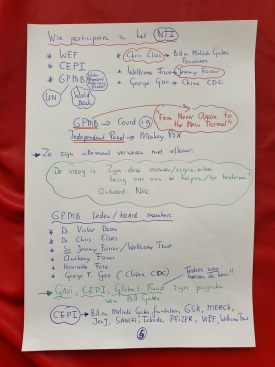 Wie participeren in het NTI
* WEF
* CEPI
* GPMB
UN
World Bank
* Chris Elias → Bill en Melinda Gates Foundation
* Wellcome Trust → Jeremy Farrar
* George Gao → China CDC
GPMB → Covid 19
Independent Panel → Monkey Pox
"From Never Again to the New Normal"
→ Ze zijn allemaal verweven met elkaar.
De vraag is: Zijn deze mensen/organisaties bezig om ons te helpen/te beschermen?
Antwoord: Nee
GPMB leden/board members:
* Dr Victor Dzau
* Dr. Chris Elias
* Sir Jeremy Farrar/Wellcome Trust
* Anthony Fauci
* Henrietta Fore
* George F. Gao (China CDC)
→ GAVI, CEPI, Global Fund zijn projecten van Bill Gates
CEPI → Bill en Melinda Gates foundation, GSK, MERCK,
J&J, SANOFI, Takeda, PFIZER, WEF, Wellcome Trust